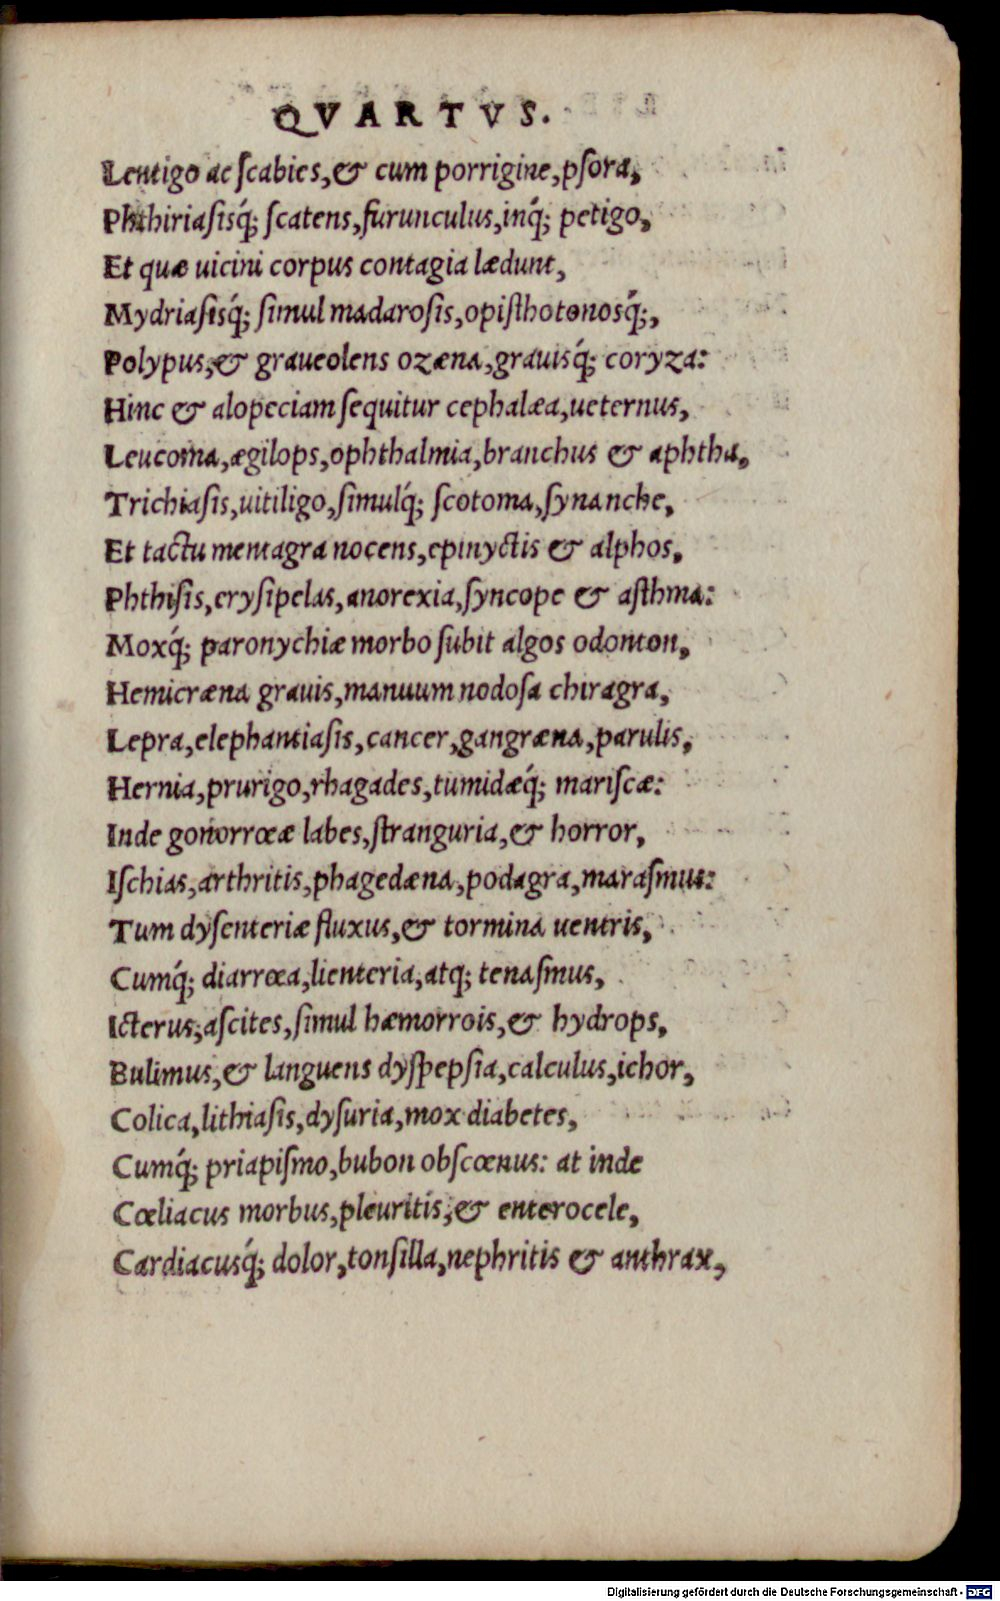 QVARTVS.
Lentigo ac ſcabies,& cum porrigine,pſora,
Phthiriaſisq́; ſcatens,furunculus,inq́; petigo,
Et quæ uicini corpus contagia lædunt,
Mydriaſisq́; ſimul madaroſis,opiſthotonosq́;,
Polypus,& graueolens ozæna,grauisq́; coryza:
Hinc & alopeciam ſequitur cephalæa,ueternus,
Leucoma,ægilops,ophthalmia,branchus & aphtha,
Trichiaſis,uitiligo,ſimulq́; ſcotoma,ſynanche,
Et tactu mentagra nocens,epinyctis & alphos,
Phthiſis,eryſipelas,anorexia,ſyncope & aſthma:
Moxq́; paronychiæ morbo ſubit algos odonton,
Hemicræna grauis,manuum nodoſa chiragra,
Lepra,elephantiaſis,cancer,gangræna,parulis,
Hernia,prurigo,rhagades,tumidæq́; mariſcæ:
Inde gonorrœæ labes,ſtranguria,& horror,
Iſchias,arthritis,phagedæna,podagra,maraſmus:
Tum dyſenteriæ fluxus,& tormina uentris,
Cumq́; diarrœa,lienteria,atq; tenaſmus,
Icterus,aſcites,ſimul hæmorrois,& hydrops,
Bulimus,& languens dyſpepſia,calculus,ichor,
Colica,lithiaſis,dyſuria,mox diabetes,
Cumq́; priapiſmo,bubon obſcœnus: at inde
Cœliacus morbus,pleuritis,& enterocele,
Cardiacusq́; dolor,tonſilla,nephritis & anthrax,
Digitalisierung gefördert durch die Deutsche Forschungsgemeinschaft - DFG